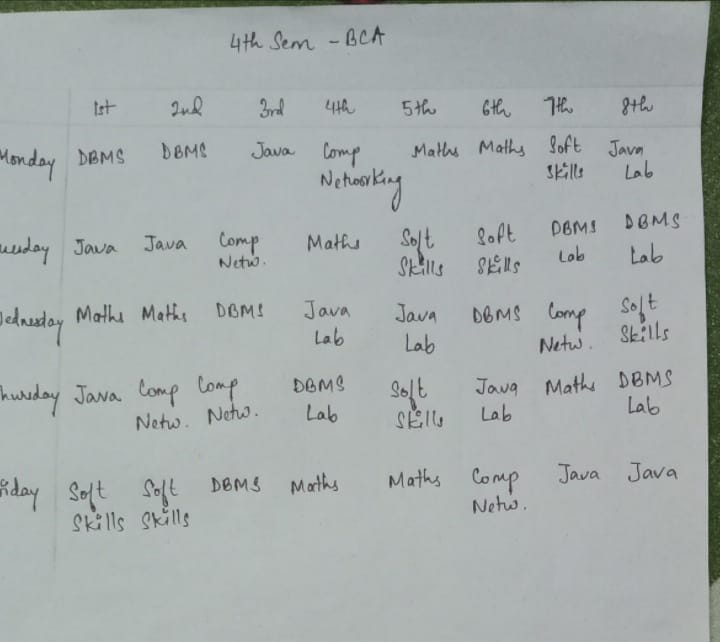 4th Sem - BCA
1st 2nd 3rd 4th 5th 6th 7th 8th
Monday DBMS DBMS Java Comp Networking Maths Maths Soft Skills Java Lab
uesday Java Java Comp Netw. Maths Soft Skills Soft Skills DBMS Lab DBMS Lab
Wednesday Maths Maths DBMS Java Lab Java Lab DBMS Comp Netw. Soft Skills
hursday Java Comp Netw. Comp Netw. DBMS Lab Soft Skills Java Lab Maths DBMS Lab
iday Soft Skills Soft Skills DBMS Maths Maths Comp Netw. Java Java